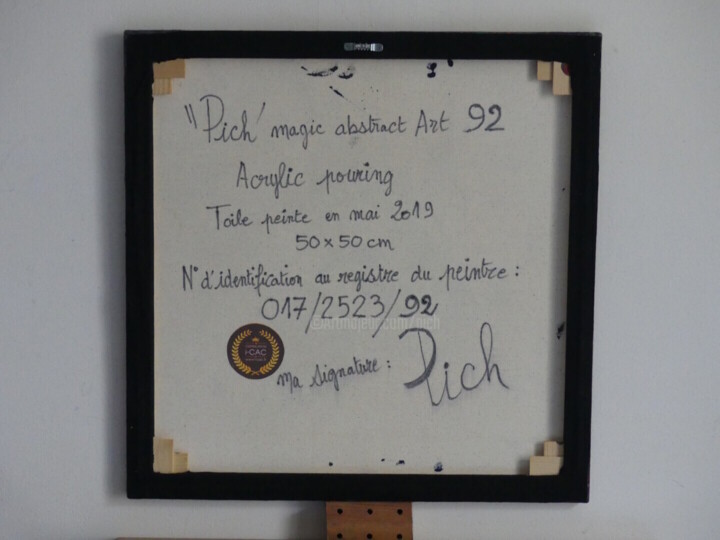 "Pich' magic abstract Art 92
Acrylic pouring
Toile peinte en mai 2019
50 x 50 cm
N° d'identification au registre du peintre :
017/2523/92
©Artmajeur.com/pich
i-CAC
ma signature : Pich